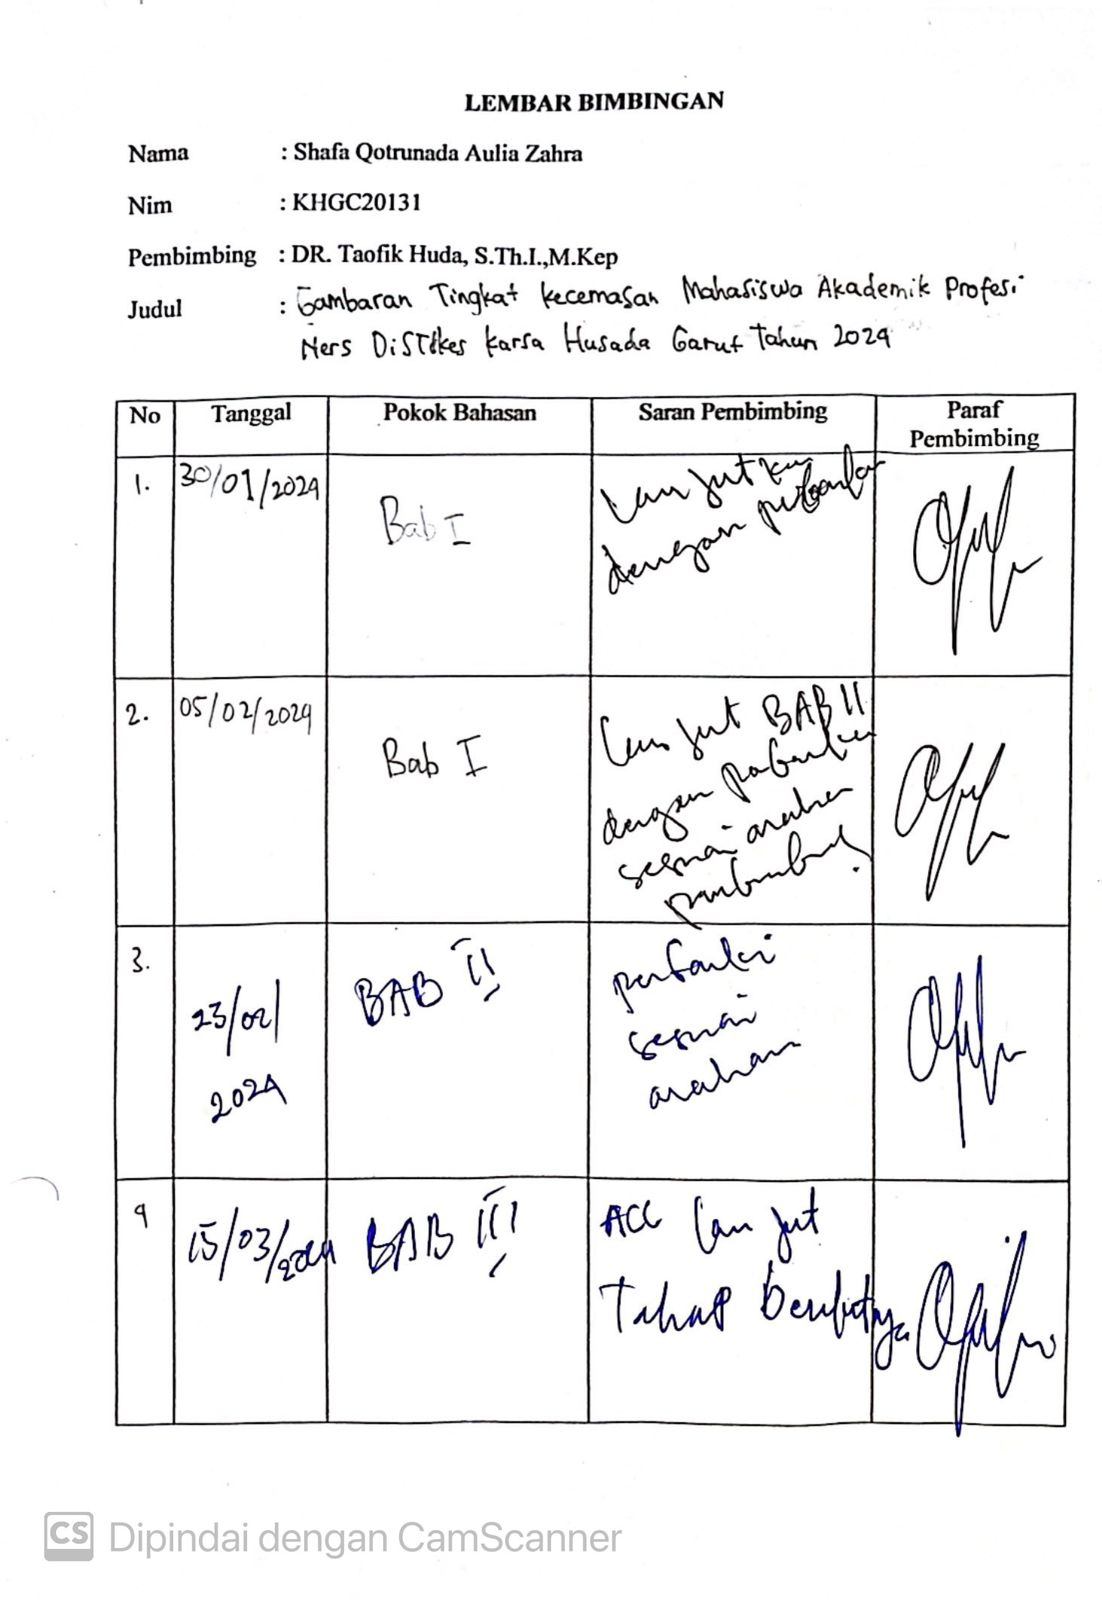 LEMBAR BIMBINGAN
Nama : Shafa Qotrunada Aulia Zahra
Nim : KHGC20131
Pembimbing : DR. Taofik Huda, S.Th.I.,M.Kep
Judul : Gambaran Tingkat kecemasan Mahasiswa Akademik Profesi
Ners DiSTikes karsa Husada Garut Tahun 2024
No Tanggal Pokok Bahasan Saran Pembimbing Paraf
Pembimbing
1. 30/01/2024 Bab I Lanjutkan
dengan perbaikan
2. 05/02/2024 Bab I Lanjut BAB II
dengan perbaikan
sesuai arahan
pembimbing
3. 23/02/
2024 BAB II perbaiki
sesuai
arahan
4 15/03/2024 BAB III ACC Lanjut
Tahap berikutnya
CS Dipindai dengan CamScanner